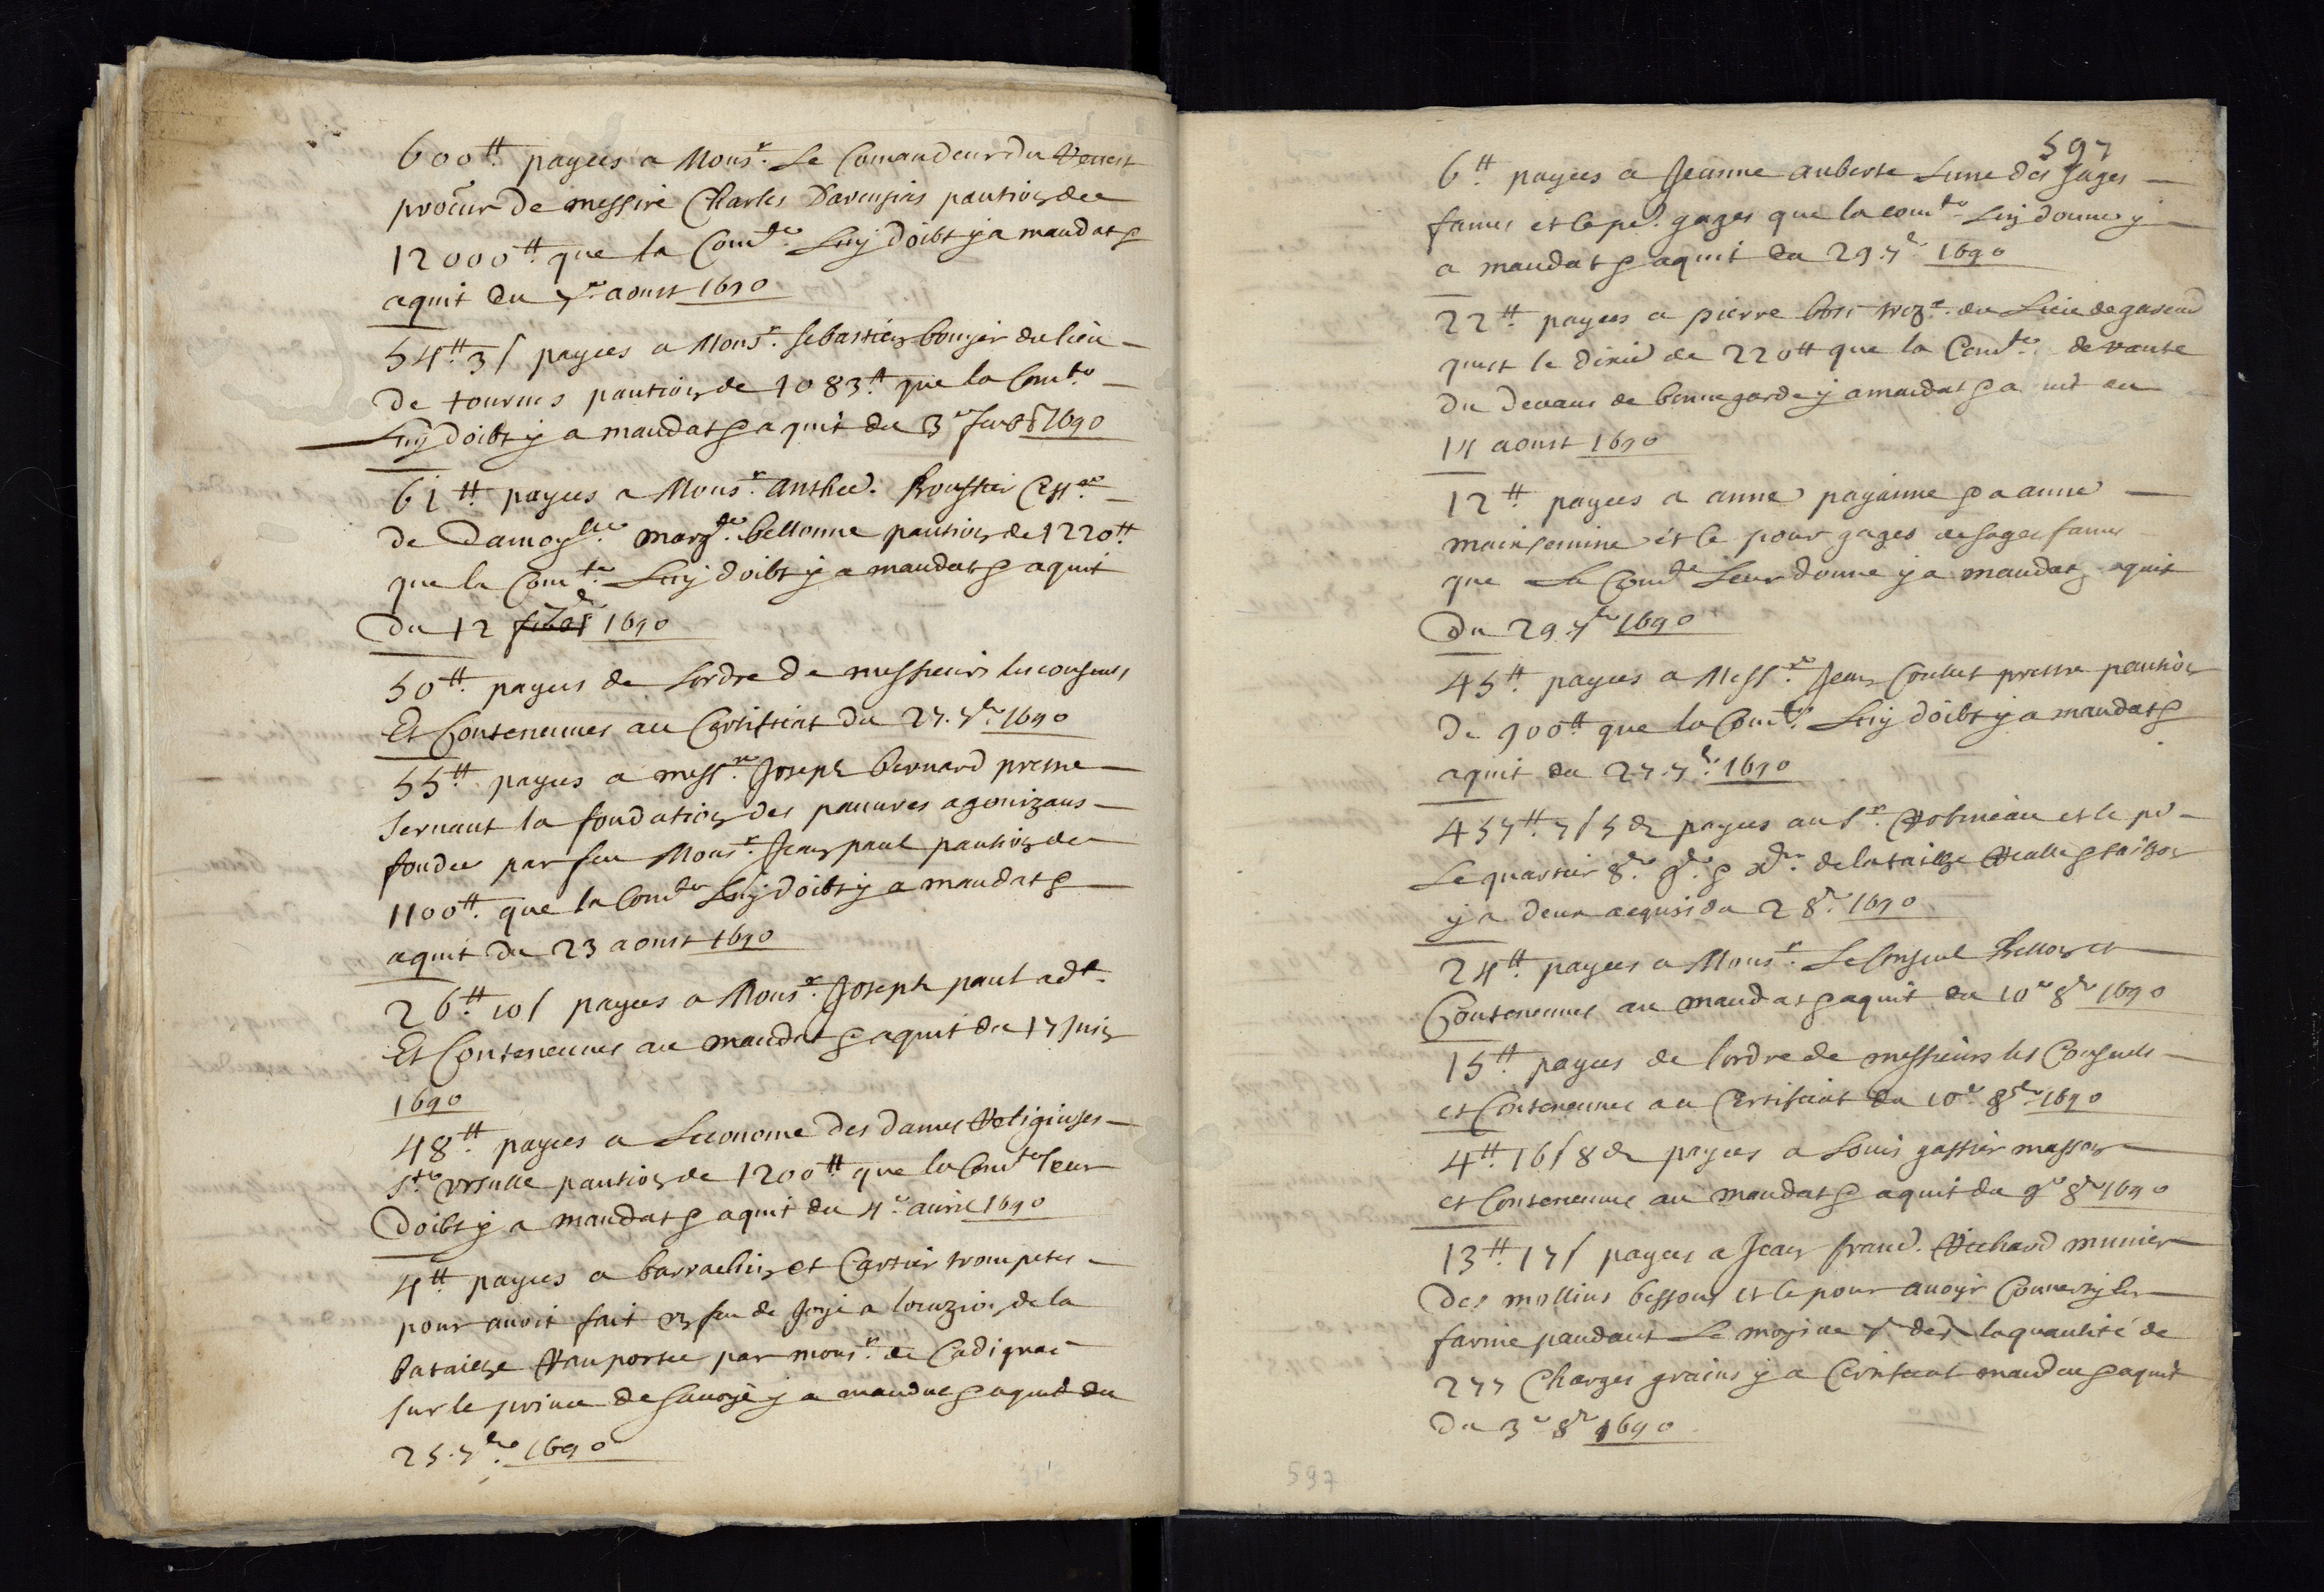 600tt payees a Monsr. Le Comandeur du Venest
procur de messire Charles Darcussias pantion de
12000tt que la Comte. Luy doibt y a mandat &
aquit du 7e aoust 1690
54tt 3s payees a Monsr. Sebastien bougier du lieu
de tourues pantion de 1083tt que la Comte
Luy doibt y a mandat & aquit du 3e 1690
61tt payees a Monsr. Anthe. Roustier
de Damoylle. margte. bellonne pantion de 1220tt
que la Comte. Luy doibt y a mandat & aquit
Du 12 1690
50tt payees de Lordre de messieurs les consuls
Et Conteneues au Certificat du 27. 7bre. 1690
55tt payees a messre. Joseph bernard prestre
servant la fondation des pauvres agonizans
fondee par feu Monsr. Jean paul pantion de
1100tt. que la Comte Luy doibt y a mandat &
aquit du 23 aoust 1690
26tt 10s payees a Monsr. Joseph paul adt.
Et Conteneues au mandat & aquit du 17 Juin
1690
48tt payees a Leconome des dames Religiuses
Ste Ursulle pantion de 1200tt que la Comte leur
Doibt y a mandat & aquit du 4e avril 1690
4tt payees a barraelier et Cartier trompetes
pour avoir fait un feu de Joye a locazion de la
bataillze Ranportee par monsr. de Cadignac
sur le prince de Savoye y a mandat & aquit du
25. 7bre. 1690
597
6tt payees a Jeanne auberte Lune des sages
fames et le pr. gages que la comte Luy donne y
a mandat & aquit du 29. 7bre 1690
22tt payees a pierre bosc trezr. du Lieu de gareoud
quest le dirie de 220tt que la Comte. de rante
du devans de bonnegarde y a mandat & a uit du
14 aoust 1690
12tt payees a anne payanne & a anne
mainsemine et le pour gages de sages fames
que La Comte Leur donne y a mandat aquit
Du 29. 7bre 1690
45tt payees a Messre. Jean Coulet prestre pantion
De 900tt que la Comte. Luy doibt y a mandat &
aquit du 27. 7bre. 1690
457tt. 7s 5d payees au Sr. Robineau et le pr
Le quartier 8bre. 9bre. & Xbre. de la taillze Realle & taizon
y a deux acquis du 2 8bre. 1690
24tt payees a Monsr. Le Consul Rellon et
Conteneues au mandat & aquit du 10e 8bre 1690
15tt payees de lordre de messieurs les Consuls
et Conteneues au Certificat du 10e 8bre 1690
4tt. 16s 8d payees a Louis gassier masson
et Conteneues au mandat & aquit du 9e 8bre 1690
13tt 17s payees a Jean franc. Richard munier
Des mollins bessons et le pour avoyr Converty les
farine pandant Le moys de 7bre der la quantité de
277 Charges grains y a Certificat mandat & aquit
Du 3e 8bre 1690
597